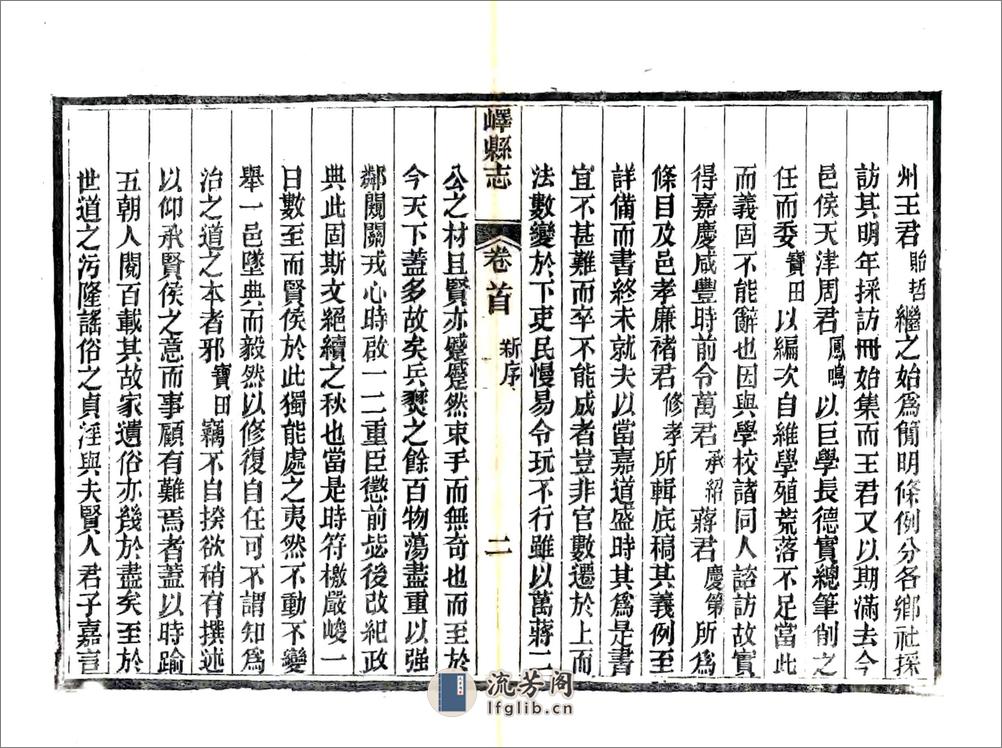 州王君貽哲繼之始爲簡明條例分各鄉社採
訪其明年採訪冊始集而王君又以期滿去今
邑侯天津周君鳳鳴以巨學長德實總筆削之
任而委寶田以編次自維學殖荒落不足當此
而義固不能辭也因與學校諸同人諮訪故實
得嘉慶咸豐時前令萬君承紹蔣君慶第所爲
條目及邑孝廉褚君修孝所輯底稿其義例至
詳備而書終未就夫以當嘉道盛時其爲是書
宜不甚難而卒不能成者豈非官數遷於上而
法數變於下吏民慢易令玩不行雖以萬蔣二
嶧縣志
卷首
新序
二
公之材且賢亦蹙蹙然束手而無奇也而至於
今天下蓋多故矣兵燹之餘百物蕩盡重以强
鄰閱關戎心時啟一二重臣懲前毖後改紀政
典此固斯文絕續之秋也當是時符檄嚴峻一
日數至而賢侯於此獨能處之夷然不動不變
舉一邑墜典而毅然以修復自任可不謂知爲
治之道之本者邪寶田竊不自揆欲稍有撰述
以仰承賢侯之意而事顧有難焉者蓋以時踰
五朝人閱百載其故家遺俗亦幾於盡矣至於
世道之污隆謠俗之貞淫與夫賢人君子嘉言
流芳阁
lfglib.cn